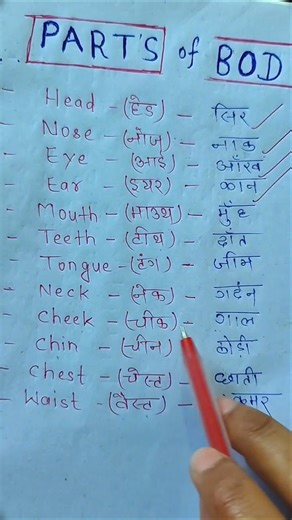 PART'S of BOD
- Head - (हेड) - सिर
- Nose - (नोज) - नाक
- Eye - (आई) - आँख
- Ear - (इयर) - कान
- Mouth - (माउथ) - मुँह
- Teeth - (टीथ) - दाँत
- Tongue - (टंग) - जीभ
- Neck - (नेक) - गर्दन
- Cheek - (चीक) - गाल
- Chin - (चीन) - ठोड़ी
- Chest - (चेस्ट) - छाती
- Waist - (वेस्ट) - कमर